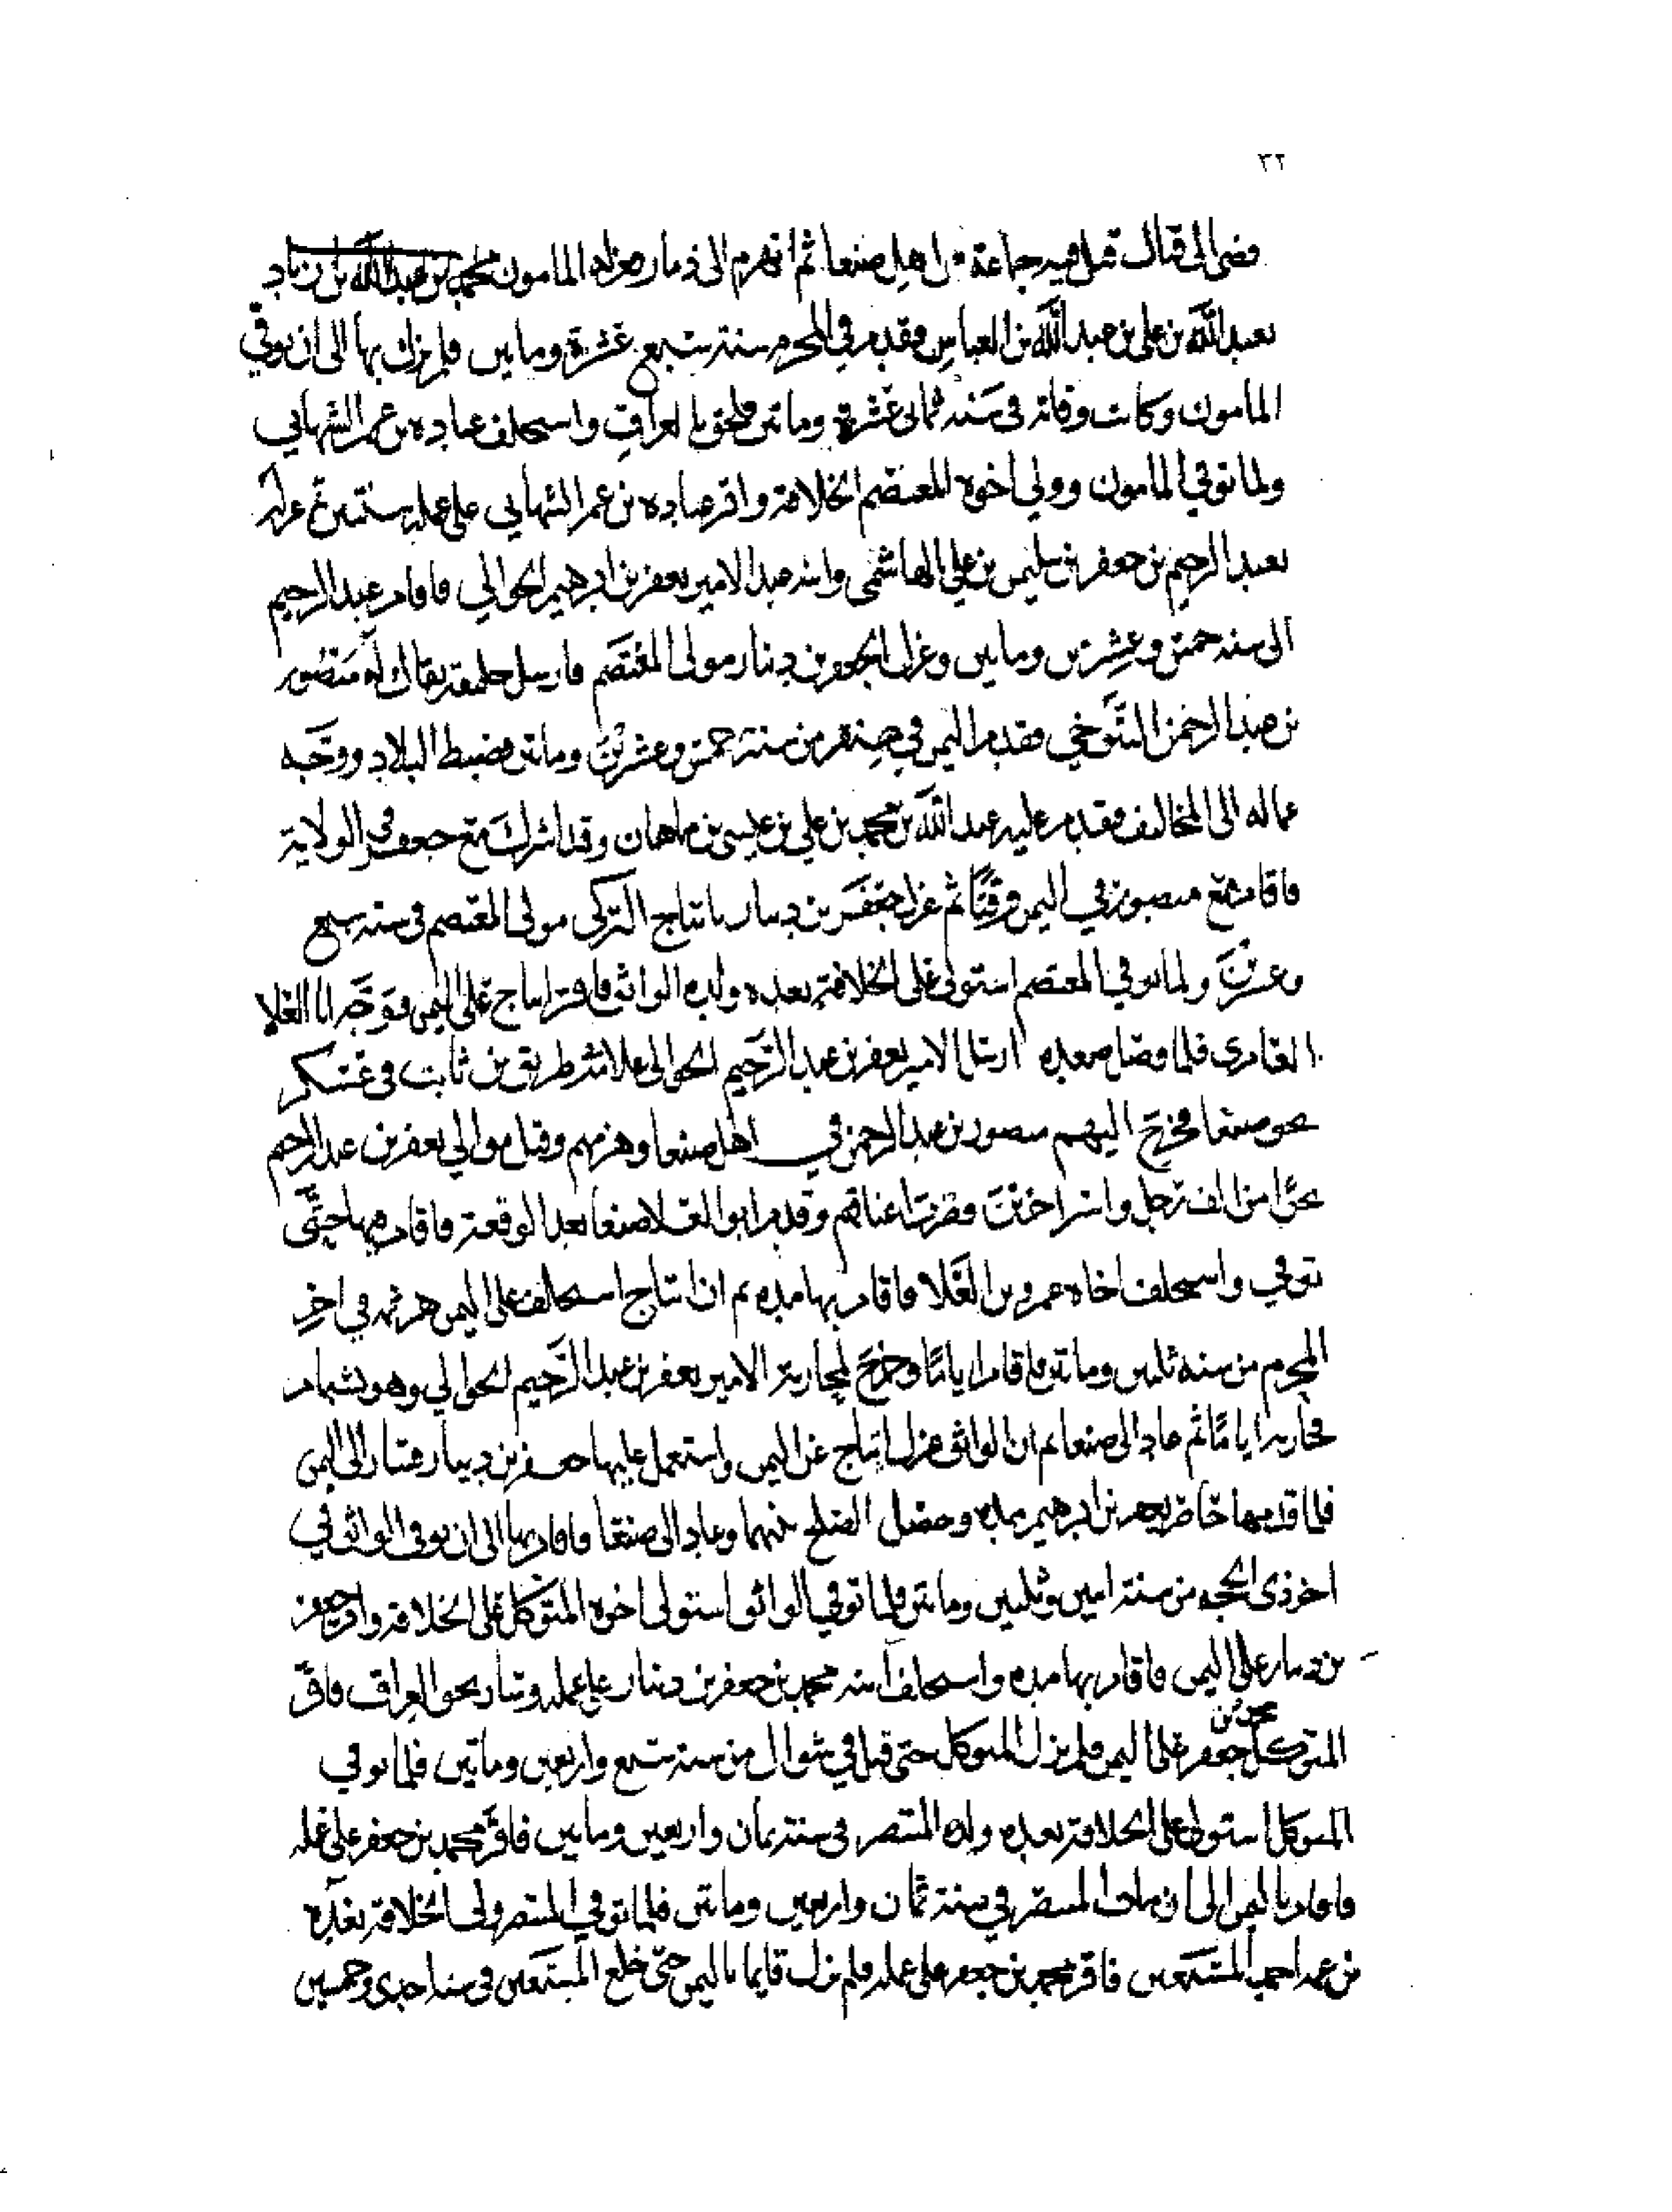 ٣٢
فضى الى قتال قتل فيه جماعة من اهل صنعا ثم انهزم الى ذمار وعزله المامون محمد بن عبد الله بن زياد
بعبد الله بن على بن عبد الله بن العباس فقدم في المحرم سنة سبع عشرة ومايتين فلم يزل بها الى ان توفي
المامون وكانت وفاته فى سنة ثمانى عشرة وماتين فلحق بالعراق واستخلف عباده بن عمر الشهابي
ولما توفي المامون وولي اخوه المعتصم الخلافة واقر عباده بن عمر الشهابي على عمله سنتين ثم عزله
بعبد الرحيم بن جعفر بن سليمن بن علي الهاشمى الامير يعفر بن ابرهيم الحوالي فاقام عبد الرحيم
الى سنة خمس وعشرين ومايتين وعزل بجعفر بن دينار مولى المعتصم فارسل خليفة يقال له منصور
بن عبد الرحمن التنوخي فقدم اليمن في صفر من سنة خمس وعشرين وماتين فضبط البلاد ووجه
عماله الى المخاليف فقدم عليه عبد الله بن محمد بن علي بن عيسى بن ماهان وقد اشرك مع جعفر في الولاية
فاقام مع منصور في اليمن وقتا ثم عزل جعفر بن دينار بايتاج التركى مولى المعتصم فى سنة سبع
وعشرين ولما توفي المعتصم استولى على الخلافة بعده ولده الواثق فاقر ايتاج على اليمن فوجه ابا العلا
العامرى فلما وصل صعده ارسل الامير يعفر بن عبد الرحيم الحوالى غلامه طريق بن ثابت فى عسكر
نحو صنعا فخرج اليهم منصور بن عبد الرحمن في اهل صنعا وهزمهم وقتل موالي يعفر بن عبد الرحيم
نحوا من الف رجل واسر اخرين فضربت اعناقهم وقدم ابو العلا صنعا بعد الوقعة فاقام بها حتى
توفي واستخلف اخاه عمرو بن العلا فاقام بها مده ثم ان ايتاج استخلف على اليمن هرثمه في اخر
المحرم من سنه ثلثين وماتين فاقام اياما وخرج لمحاربة الامير يعفر بن عبد الرحيم الحوالي وهو بشبام
فحاربه اياما ثم عاد الى صنعا ثم ان الواثق عزل ايتاج عن اليمن واستعمل عليها جعفر بن دينار فسار الى اليمن
فلما قدمها حاصر يعفر بن ابرهيم مده وحصل الصلح بينهما وعاد الى صنعا فاقام بها الى ان توفى الواثق في
اخر ذى الحجه من سنة اثنين وثلثين وماتين فلما توفي الواثق استولى اخوه المتوكل على الخلافة واقر جعفر
بن دينار على اليمن فاقام بها مده واستخلف ابنه محمد بن جعفر بن دينار على عمله وسار نحو العراق فاقر
محمد بن
المتوكل جعفر على اليمن فلم يزل المتوكل حتى قتل في شوال من سنة سبع واربعين وماتين فلما توفي
المتوكل استولى على الخلافة بعده ولده المنتصر فى سنة ثمان واربعين ومايتين فاقر محمد بن جعفر على عمله
فاقام باليمن الى ان مات المنتصر في سنة ثمان واربعين وماتين فلما توفي المنتصر ولى الخلافة بعده
بن عمه احمد المستعين فاقر محمد بن جعفر على عمله فلم يزل قايما باليمن حتى خلع المستعين فى سنة احدى وخمسين